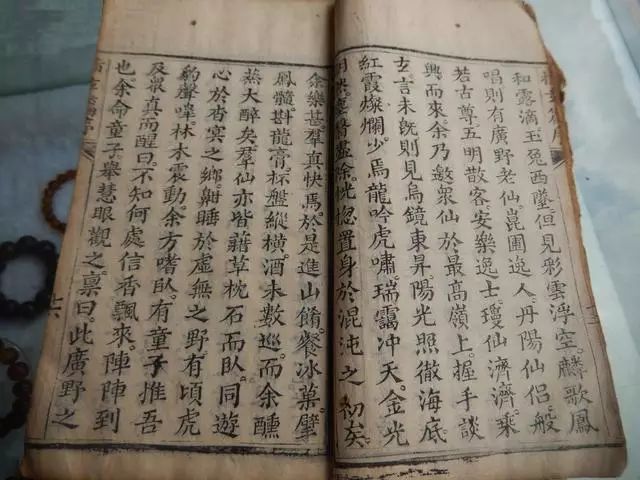 和露滴玉。兔西墜。但見彩雲浮空。麟歌鳳
唱。則有廣野老仙。崑圃逸人。丹陽仙侶。般
若古尊。五明散客。安樂逸士。瓊仙濟濟。乘
興而來。余乃邀眾仙於最高嶺上。握手談
玄。言未既。則見烏鏡東昇。陽光照徹海底
紅霞燦爛。少焉龍吟虎嘯。瑞靄冲天。金光
盡除。恍惚置身於混沌之初矣。
余樂甚。羣真快焉。於是進山餚。餐冰菓。擘
鳳髓。斟龍膏。杯盤縱橫。酒未數巡。而余醺
蒸大醉矣。羣仙亦皆藉草枕石而臥。同遊
心於杳冥之鄉。鼾睡於虛無之野。有頃虎
豹聲嘷。林木震動。余方嗜臥。有童子推吾
及眾真而醒曰。不知何處信香飄來。陣陣到
也。余命童子。舉慧眼觀之。稟曰。此廣野之